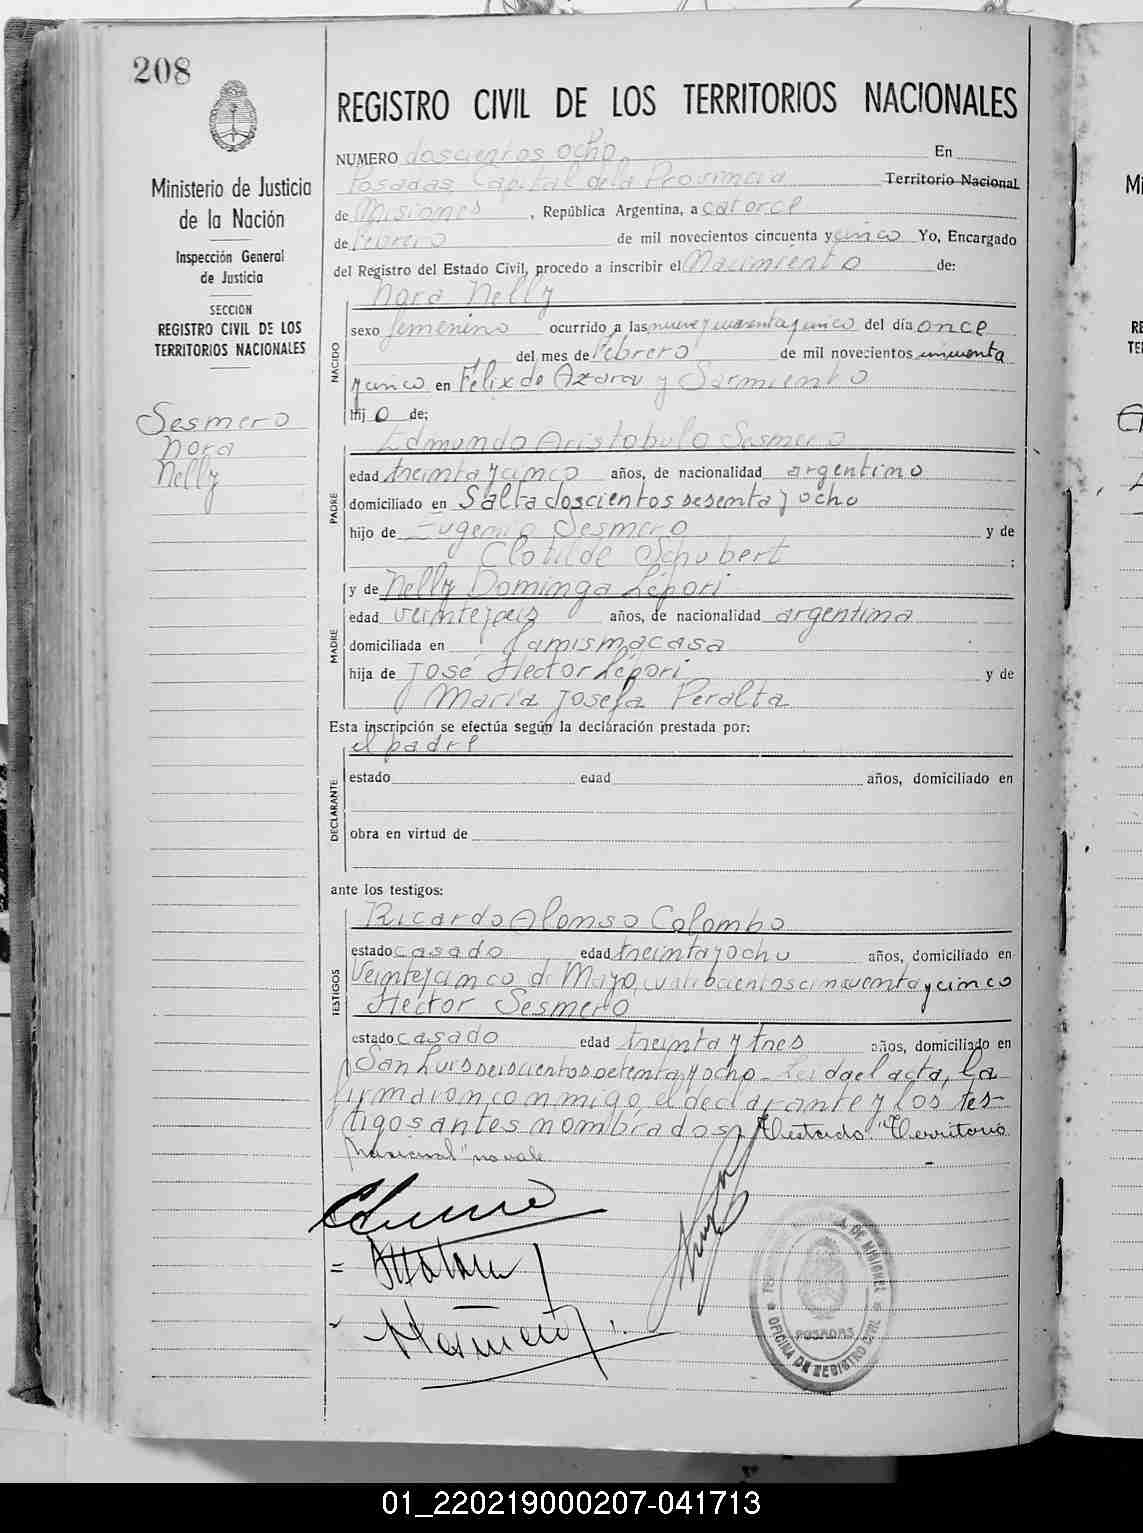 208
Ministerio de Justicia
de la Nación
Inspección General
de Justicia
SECCION
REGISTRO CIVIL DE LOS
TERRITORIOS NACIONALES
Sesmero
Nora
Nelly
REGISTRO CIVIL DE LOS TERRITORIOS NACIONALES
NUMERO doscientos ocho En
Posadas Capital de la Provincia Territorio Nacional
de Misiones, República Argentina, a catorce
de Febrero de mil novecientos cincuenta y cinco Yo, Encargado
del Registro del Estado Civil, procedo a inscribir el Nacimiento de:
Nora Nelly
NACIDO
sexo femenino ocurrido a las nueve y cuarenta y cinco del día once
del mes de Febrero de mil novecientos cincuenta
y cinco en Félix de Azara y Sarmiento
hijo de:
Edmundo Aristobulo Sesmero
PADRE
edad treinta y cinco años, de nacionalidad argentino
domiciliado en Salta doscientos sesenta y ocho
hijo de Eugenio Sesmero y de
Clotilde Schubert;
MADRE
y de Nelly Dominga Lépori
edad años, de nacionalidad argentina
domiciliada en la misma casa
hija de José Hector Lépori y de
María Josefa Peralta
Esta inscripción se efectúa según la declaración prestada por:
el padre
DECLARANTE
estado edad años, domiciliado en
obra en virtud de
ante los testigos:
TESTIGOS
Ricardo Alonso Colombo
estado casado edad treinta y ocho años, domiciliado en
Veinte y cinco de Mayo, cuatrocientos cincuenta y cinco
Hector Sesmero
estado casado edad treinta y tres años, domiciliado en
San Luis seiscientos setenta y ocho - Leida el acta, la
firmaron conmigo, el declarante y los tes-
tigos antes nombrados. Testado: "Territorio
Nacional" no vale.
OFICINA DE REGISTRO CIVIL
POSADAS
01_220219000207-041713